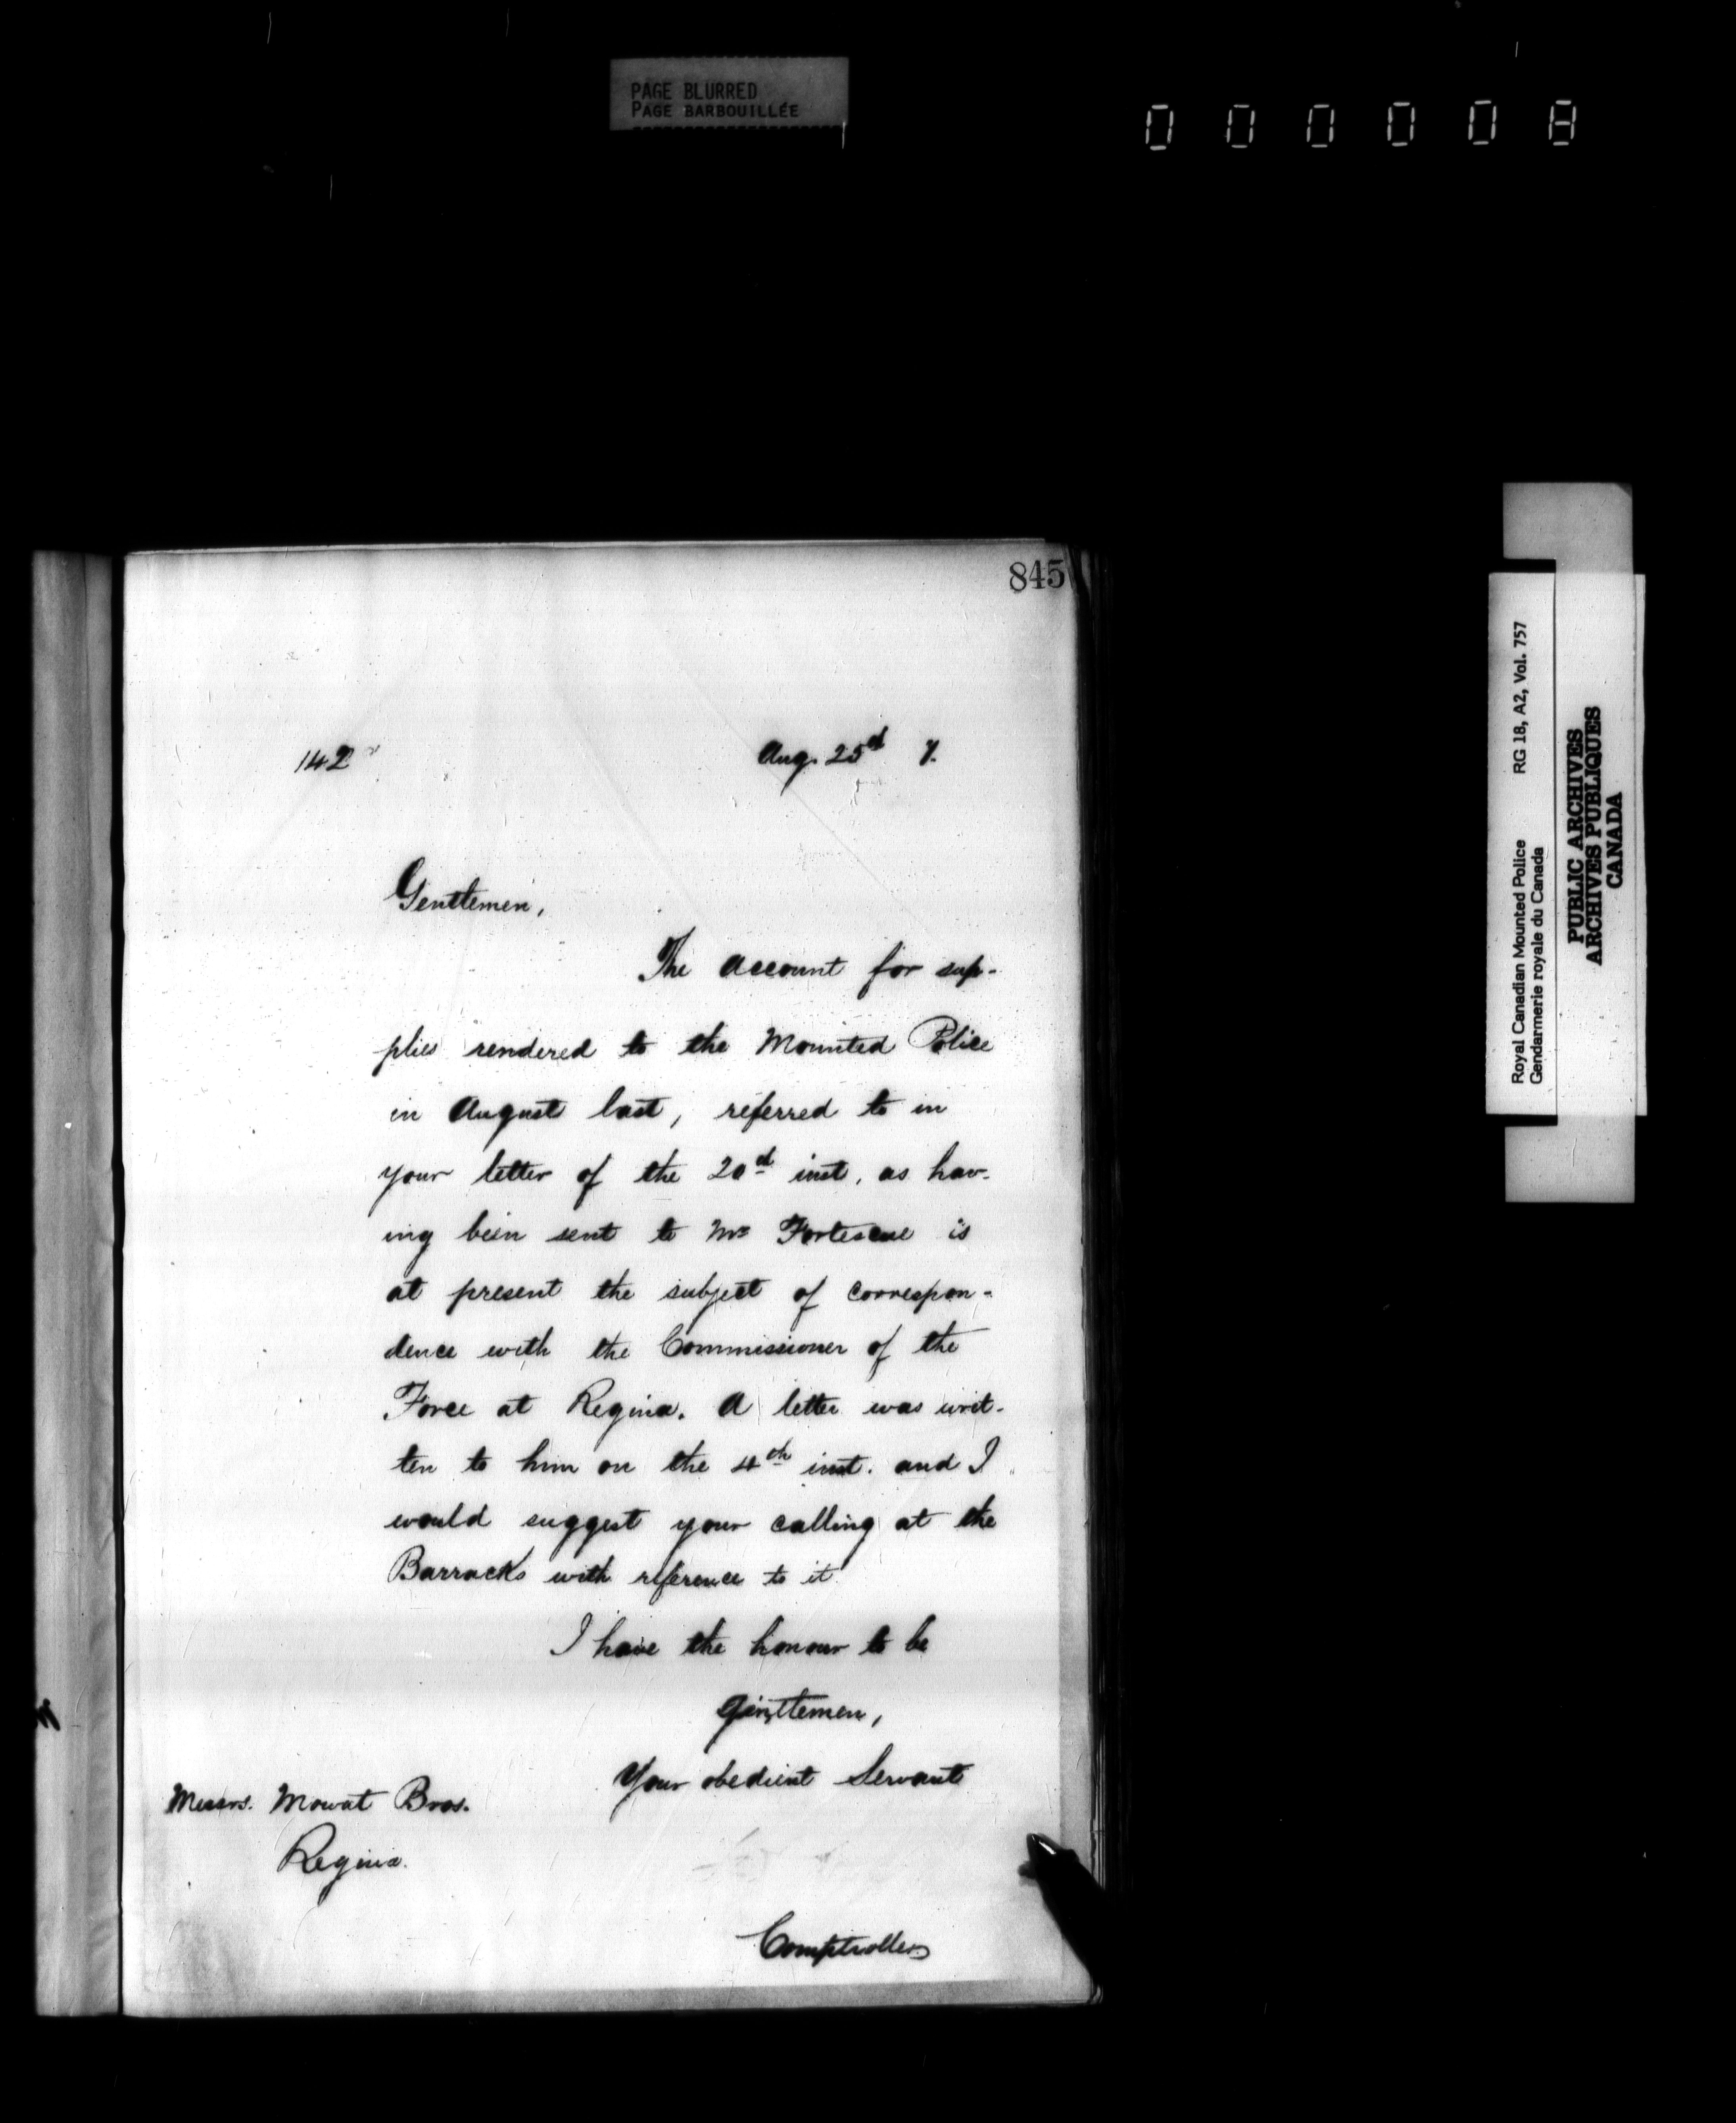 PAGE BLURRED
PAGE BARBOUILLÉE
000008
845
142
Aug. 25d 7.
Gentlemen,
The account for sup-
plies rendered to the Mounted Police
in August last, referred to in
your letter of the 20d inst, as hav-
ing been sent to Mr Fortescue is
at present the subject of correspon-
dence with the Commissioner of the
Force at Regina. A letter was writ-
ten to him on the 4th inst. and I
would suggest your calling at the
Barracks with reference to it
I have the honour to be
Gentlemen,
Your obedient Servant
Messrs. Mowat Bros.
Regina.
Comptroller
Royal Canadian Mounted Police RG 18, A2, Vol. 757
Gendarmerie royale du Canada
PUBLIC ARCHIVES
ARCHIVES PUBLIQUES
CANADA